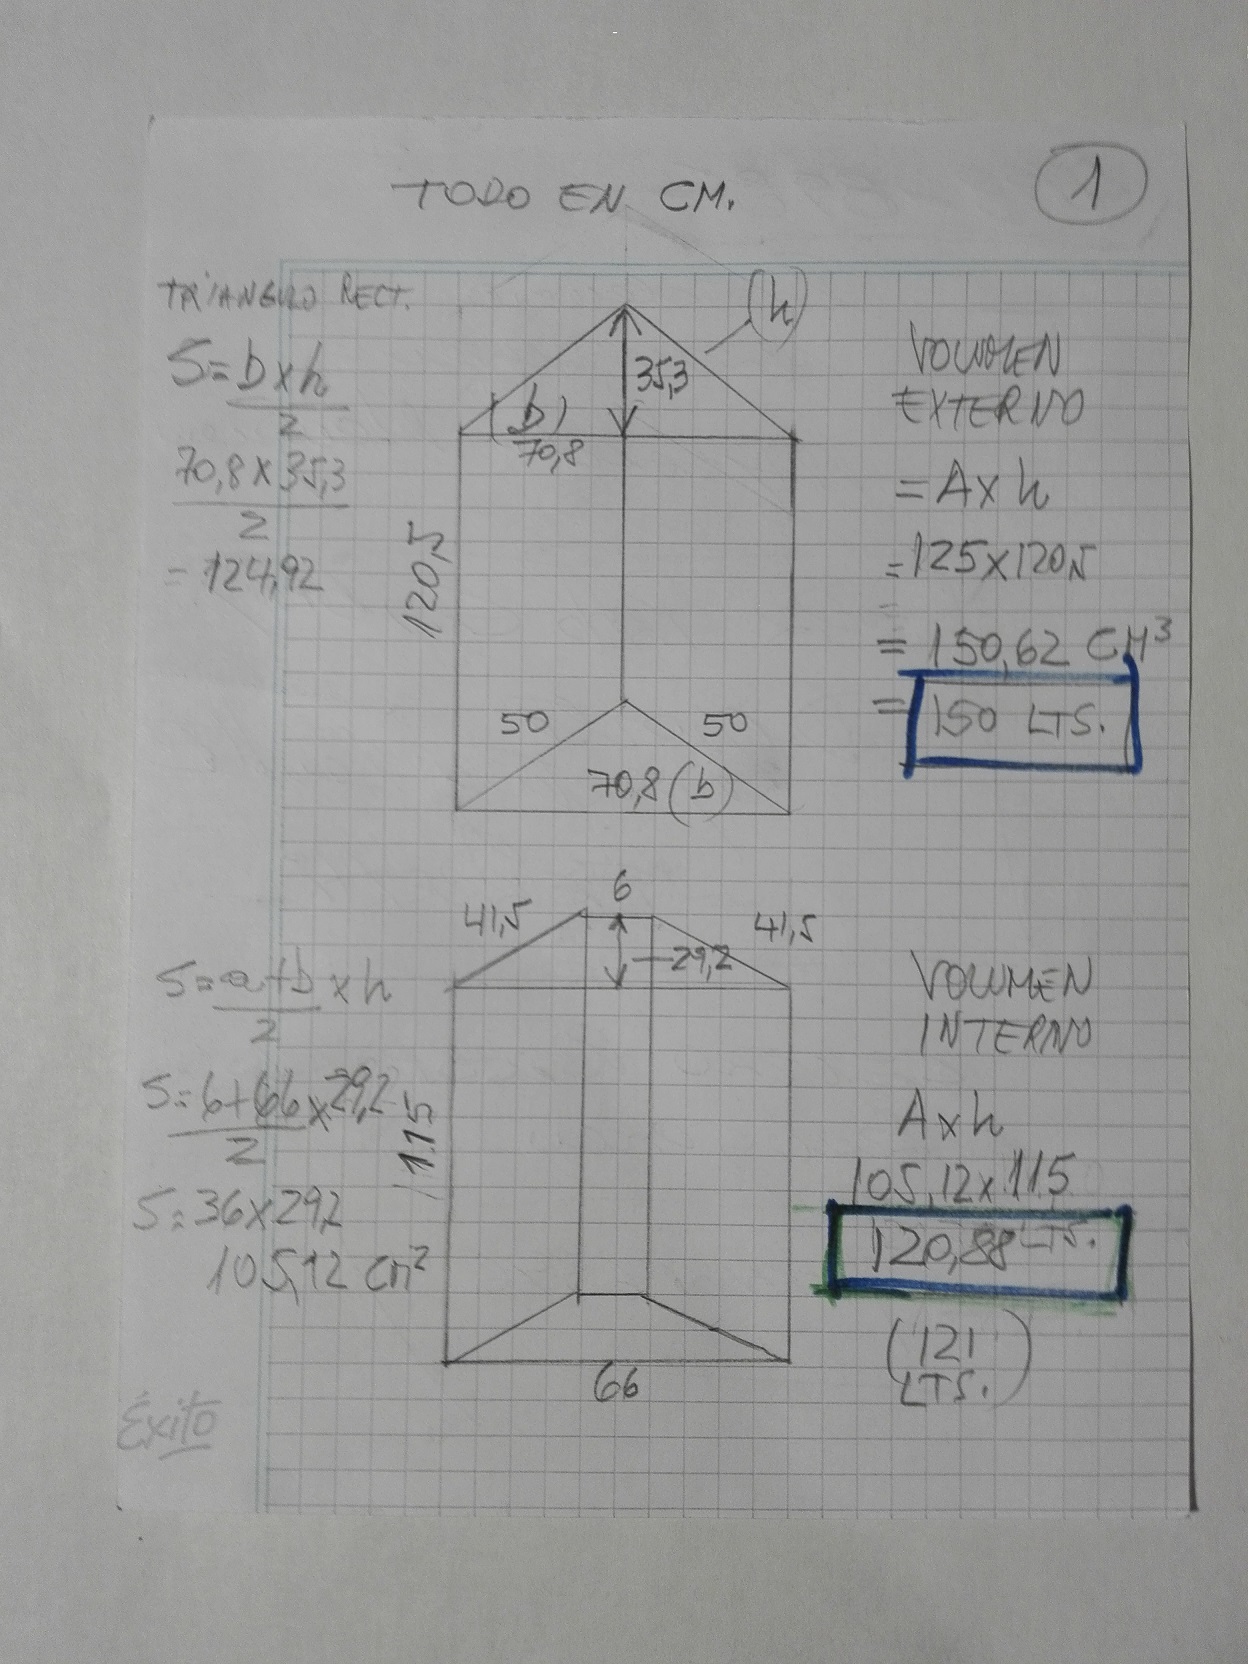 TODO EN CM.
1
TRIANGULO RECT.
S=bxh
2
70,8x35,3
2
= 124,92
(h)
35,3
(b)
70,8
120,5
50
50
70,8 (b)
VOLUMEN
EXTERNO
= A x h
= 125x120,5
= 150,62 CM³
= 150 LTS.
6
41,5
41,5
29,2
S=a+b x h
2
S=6+66x29,2
2
S=36x29,2
105,12 cm²
115
66
VOLUMEN
INTERNO
Axh
105,12x115
120,88 LTS.
(121
LTS.)
Éxito